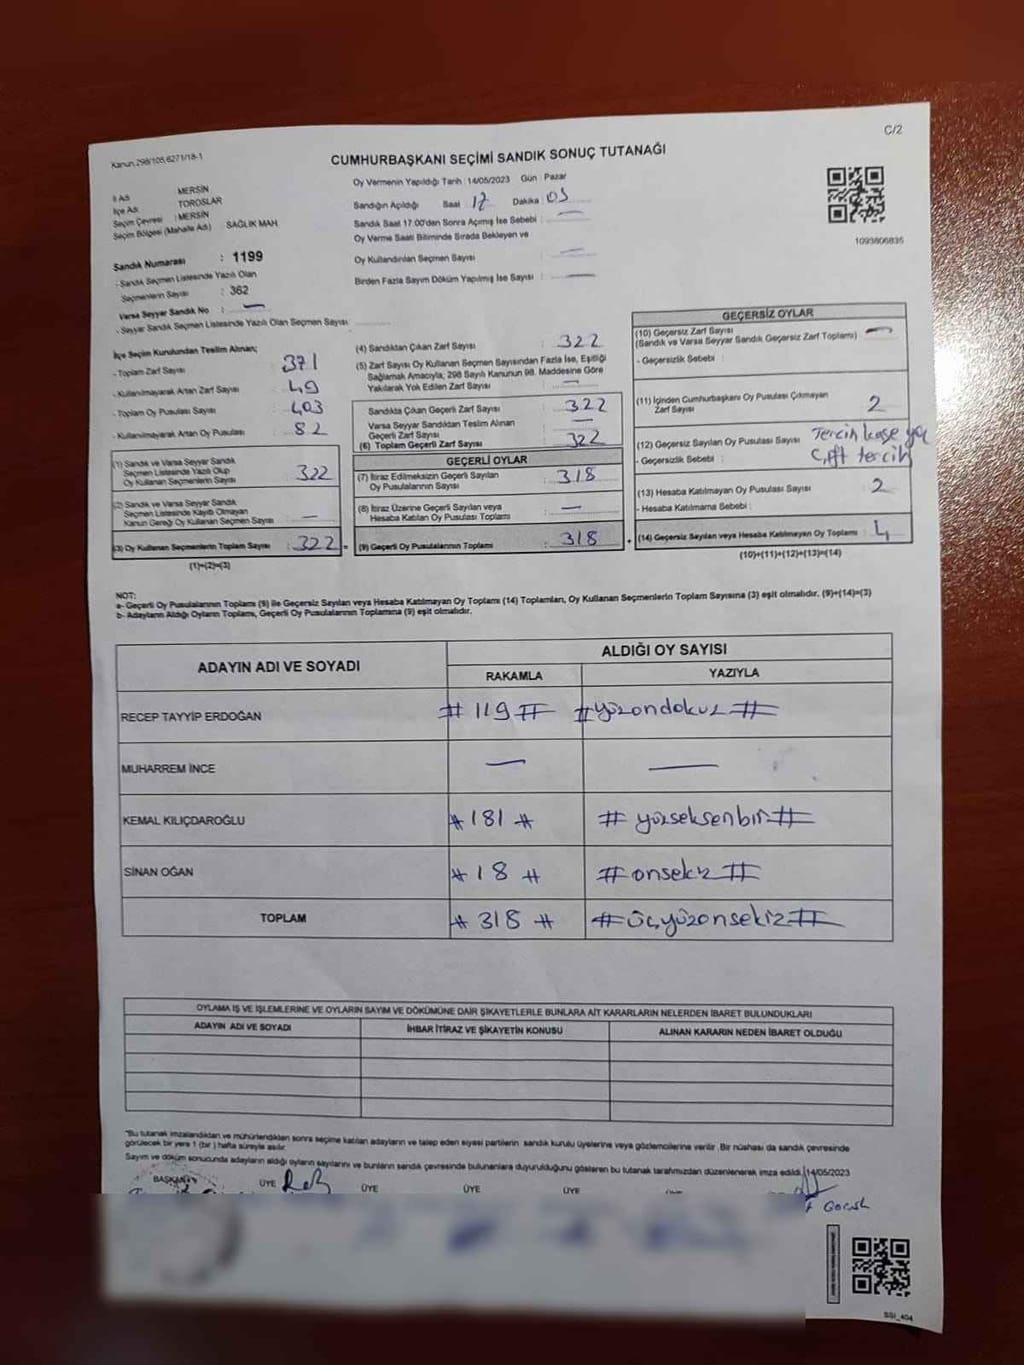 C/2
Kanun 298/105,6271/18-1
CUMHURBAŞKANI SEÇİMİ SANDIK SONUÇ TUTANAĞI
İl Adı MERSİN
İlçe Adı TOROSLAR
Seçim Çevresi : MERSİN
Seçim Bölgesi (Mahalle Adı) SAĞLIK MAH
Sandık Numarası : 1199
- Sandık Seçmen Listesinde Yazılı Olan
Seçmenlerin Sayısı : 362
Varsa Seyyar Sandık No : —
- Seyyar Sandık Seçmen Listesinde Yazılı Olan Seçmen Sayısı :
Oy Vermenin Yapıldığı Tarih : 14/05/2023 Gün : Pazar
Sandığın Açıldığı Saat : 17 Dakika : 05
Sandık Saat 17.00'den Sonra Açımış İse Sebebi : —
Oy Verme Saati Bitiminde Sırada Bekleyen ve
Oy Kullandırılan Seçmen Sayısı : —
Birden Fazla Sayım Döküm Yapılmış İse Sayısı : —
1093806835
İlçe Seçim Kurulundan Teslim Alınan;
- Toplam Zarf Sayısı : 371
- Kullanılmayarak Artan Zarf Sayısı : 49
- Toplam Oy Pusulası Sayısı : 403
- Kullanılmayarak Artan Oy Pusulası : 82
(1) Sandık ve Varsa Seyyar Sandık
Seçmen Listesinde Yazılı Olup
Oy Kullanan Seçmenlerin Sayısı : 322
(2) Sandık ve Varsa Seyyar Sandık
Seçmen Listesinde Kayıtlı Olmayan
Kanun Gereği Oy Kullanan Seçmen Sayısı : —
(3) Oy Kullanan Seçmenlerin Toplam Sayısı : 322 =
(1)+(2)=(3)
(4) Sandıktan Çıkan Zarf Sayısı : 322
(5) Zarf Sayısı Oy Kullanan Seçmen Sayısından Fazla İse, Eşitliği
Sağlamak Amacıyla; 298 Sayılı Kanunun 98. Maddesine Göre
Yakılarak Yok Edilen Zarf Sayısı : —
Sandıkta Çıkan Geçerli Zarf Sayısı : 322
Varsa Seyyar Sandıktan Teslim Alınan
Geçerli Zarf Sayısı : —
(6) Toplam Geçerli Zarf Sayısı : 322
GEÇERLİ OYLAR
(7) İtiraz Edilmeksizin Geçerli Sayılan
Oy Pusulalarının Sayısı : 318
(8) İtiraz Üzerine Geçerli Sayılan veya
Hesaba Katılan Oy Pusulası Toplamı : —
(9) Geçerli Oy Pusulalarının Toplamı : 318 +
GEÇERSİZ OYLAR
(10) Geçersiz Zarf Sayısı
(Sandık ve Varsa Seyyar Sandık Geçersiz Zarf Toplamı) : —
- Geçersizlik Sebebi :
(11) İçinden Cumhurbaşkanı Oy Pusulası Çıkmayan
Zarf Sayısı : 2
(12) Geçersiz Sayılan Oy Pusulası Sayısı : Tercih kaşe yok
- Geçersizlik Sebebi : Çift tercih
(13) Hesaba Katılmayan Oy Pusulası Sayısı : 2
- Hesaba Katılmama Sebebi :
(14) Geçersiz Sayılan veya Hesaba Katılmayan Oy Toplamı : 4
(10)+(11)+(12)+(13)=(14)
NOT:
a- Geçerli Oy Pusulalarının Toplamı (9) ile Geçersiz Sayılan veya Hesaba Katılmayan Oy Toplamı (14) Toplamları, Oy Kullanan Seçmenlerin Toplam Sayısına (3) eşit olmalıdır. (9)+(14)=(3)
b- Adayların Aldığı Oyların Toplamı, Geçerli Oy Pusulalarının Toplamına (9) eşit olmalıdır.
ADAYIN ADI VE SOYADI ALDIĞI OY SAYISI
RAKAMLA YAZIYLA
RECEP TAYYİP ERDOĞAN # 119 # # yüzondokuz #
MUHARREM İNCE — —
KEMAL KILIÇDAROĞLU # 181 # # yüzseksenbir #
SİNAN OĞAN # 18 # # onsekiz #
TOPLAM # 318 # # üçyüzonsekiz #
OYLAMA İŞ VE İŞLEMLERİNE VE OYLARIN SAYIM VE DÖKÜMÜNE DAİR ŞİKAYETLERLE BUNLARA AİT KARARLARIN NELERDEN İBARET BULUNDUKLARI
ADAYIN ADI VE SOYADI İHBAR İTİRAZ VE ŞİKAYETİN KONUSU ALINAN KARARIN NEDEN İBARET OLDUĞU
"Bu tutanak imzalandıktan ve mühürlendikten sonra seçime katılan adayların ve talep eden siyasi partilerin sandık kurulu üyelerine veya gözlemcilerine verilir. Bir nüshası da sandık çevresinde
görülecek bir yere 1 (bir) hafta süreyle asılır.
Sayım ve döküm sonucunda adayların aldığı oyların sayılarını ve bunların sandık çevresinde bulunanlara duyurulduğunu gösteren bu tutanak tarafımızdan düzenlenerek imza edildi. 14/05/2023
BAŞKAN ÜYE ÜYE ÜYE ÜYE
SSI_404